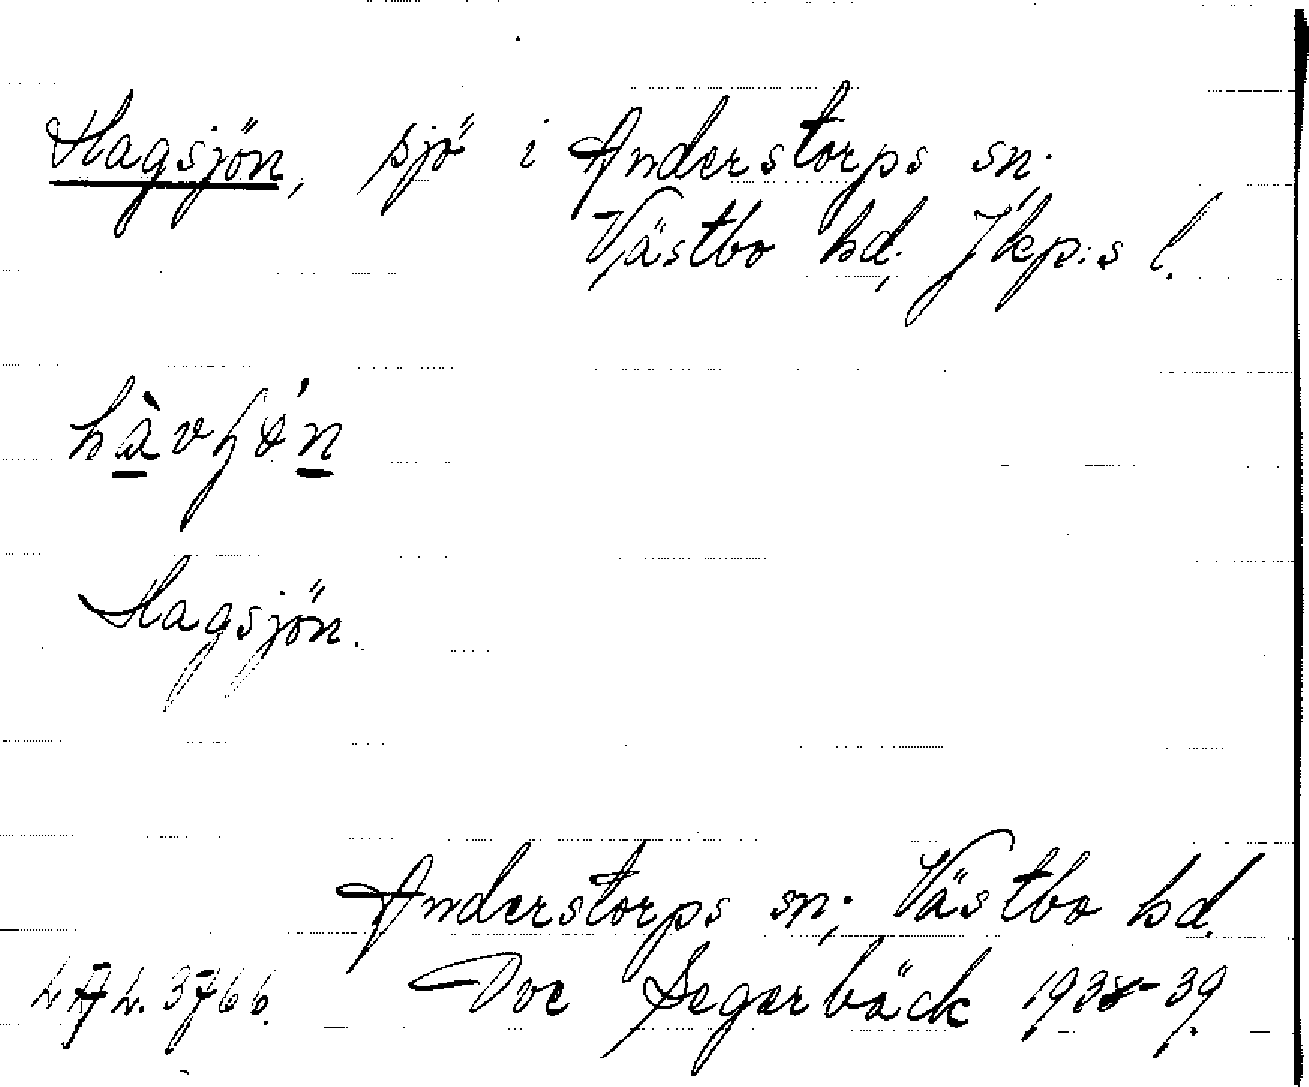 Hagsjön, sjö i Anderstorps sn;
Västbo hd; Jkp:s l.
Hagsjön.
Anderstorps sn; Västbo hd.
LAL. 3766. Segerbäck 1938-39